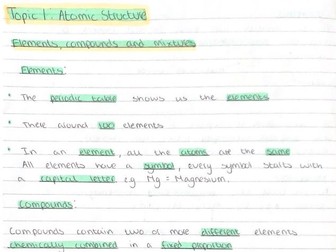 Topic 1: Atomic Structure
Elements, compounds and mixtures
Elements:
• The periodic table shows us the elements
• There around 100 elements
• In an element, all the atoms are the same
All elements have a symbol, every symbol starts with
a capital letter eg Mg = Magnesium.
Compounds:
Compounds contain two or more different elements
chemically combined in a fixed proportion